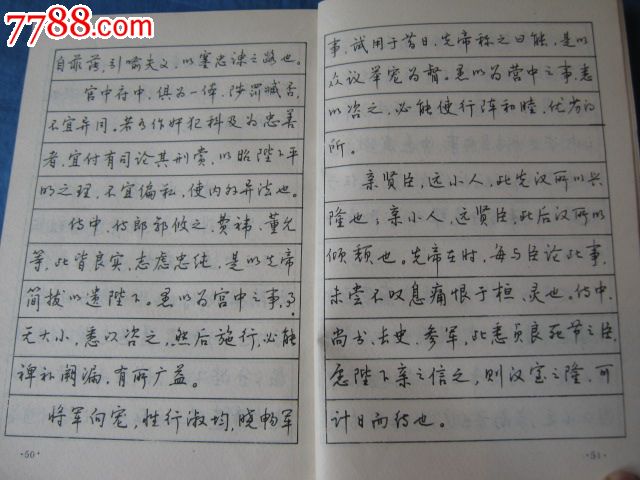 7788.com
自菲薄，引喻失义，以塞忠谏之路也。
宫中府中，俱为一体，陟罚臧否，
不宜异同。若有作奸犯科及为忠善
者，宜付有司论其刑赏，以昭陛下平
明之理，不宜偏私，使内外异法也。
侍中、侍郎郭攸之、费祎、董允
等，此皆良实，志虑忠纯，是以先帝
简拔以遗陛下。愚以为宫中之事，事
无大小，悉以咨之，然后施行，必能
裨补阙漏，有所广益。
将军向宠，性行淑均，晓畅军
·50·
事，试用于昔日，先帝称之曰能，是以
众议举宠为督。愚以为营中之事，悉
以咨之，必能使行阵和睦，优劣得
所。
亲贤臣，远小人，此先汉所以兴
隆也；亲小人，远贤臣，此后汉所以
倾颓也。先帝在时，每与臣论此事，
未尝不叹息痛恨于桓、灵也。侍中、
尚书、长史、参军，此悉贞良死节之臣，
愿陛下亲之信之，则汉室之隆，可
计日而待也。
·51·